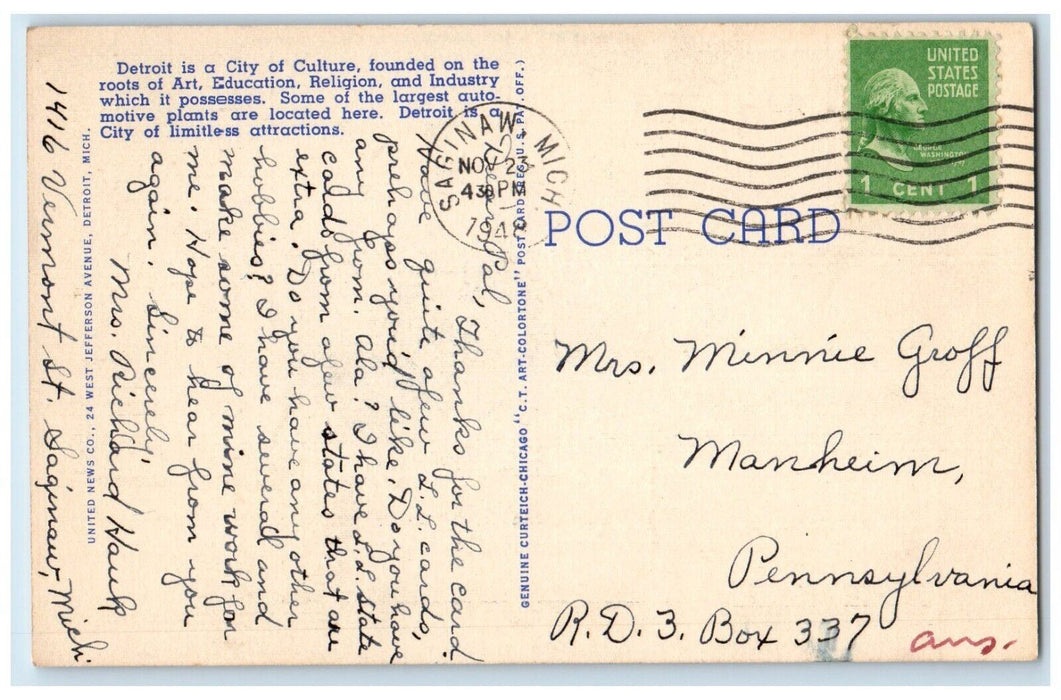 Detroit is a City of Culture, founded on the
roots of Art, Education, Religion, and Industry
which it possesses. Some of the largest auto-
motive plants are located here. Detroit is a
City of limitless attractions.
UNITED NEWS CO., 24 WEST JEFFERSON AVENUE, DETROIT, MICH.
GENUINE CURTEICH-CHICAGO "C.T. ART-COLORTONE" POST CARD (REG. U.S. PAT. OFF.)
Dear Pal,
Thanks for the card.
Have quite afew L.L. cards,
prehaps you'd like. Do you have
any from. Ala? I have L.L. state
cards from afew states that are
extra. Do you have any other
hobbies? I have several and
make some of mine work for
me. Hope to hear from you
again. Sincerely
Mrs. Richard Hauk
1416 Vermont St. Saginaw, Mich.
SAGINAW, MICH
NOV 23
430 PM
194
UNITED
STATES
POSTAGE
GEORGE
WASHINGTON
1 CENT 1
POST CARD
Mrs. Minnie Groff
Manheim,
Pennsylvania
R.D. 3. Box 337
ans.